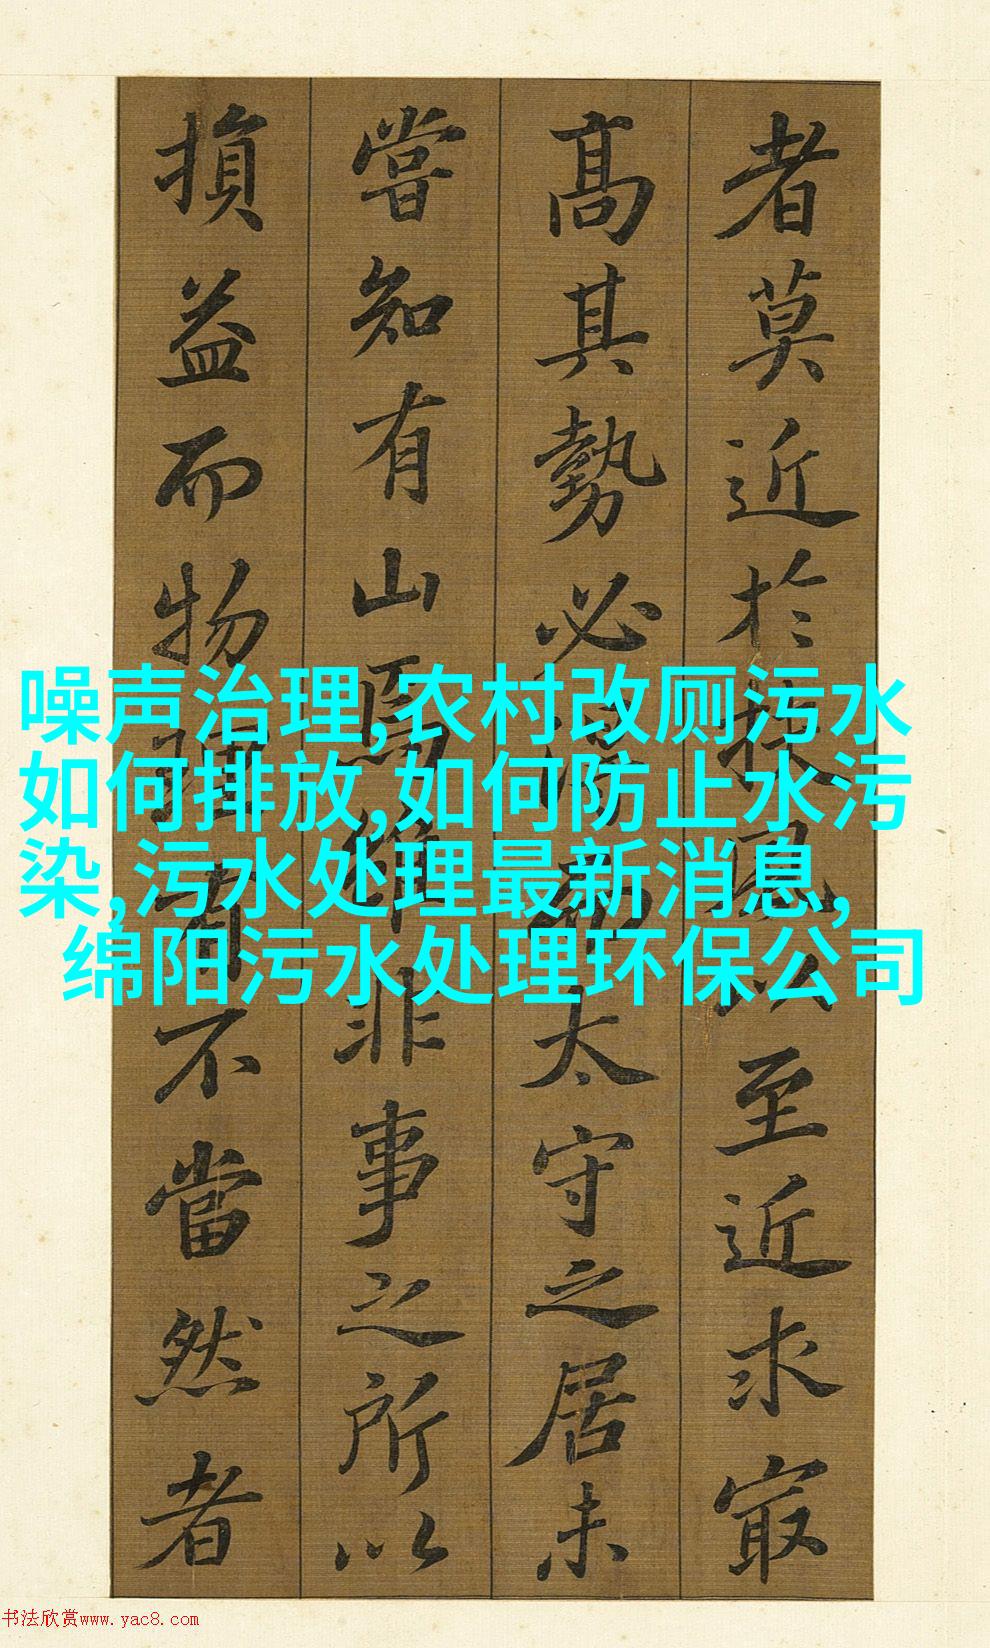 者莫近於扶風以至近求㝡
髙其勢必得而太守之居未
嘗知有山焉雖非事之所以
損益而物理有不當然者
噪声治理,农村改厕污水
如何排放,如何防止水污
染,污水处理最新消息,
绵阳污水处理环保公司
书法欣赏www.yac8.com